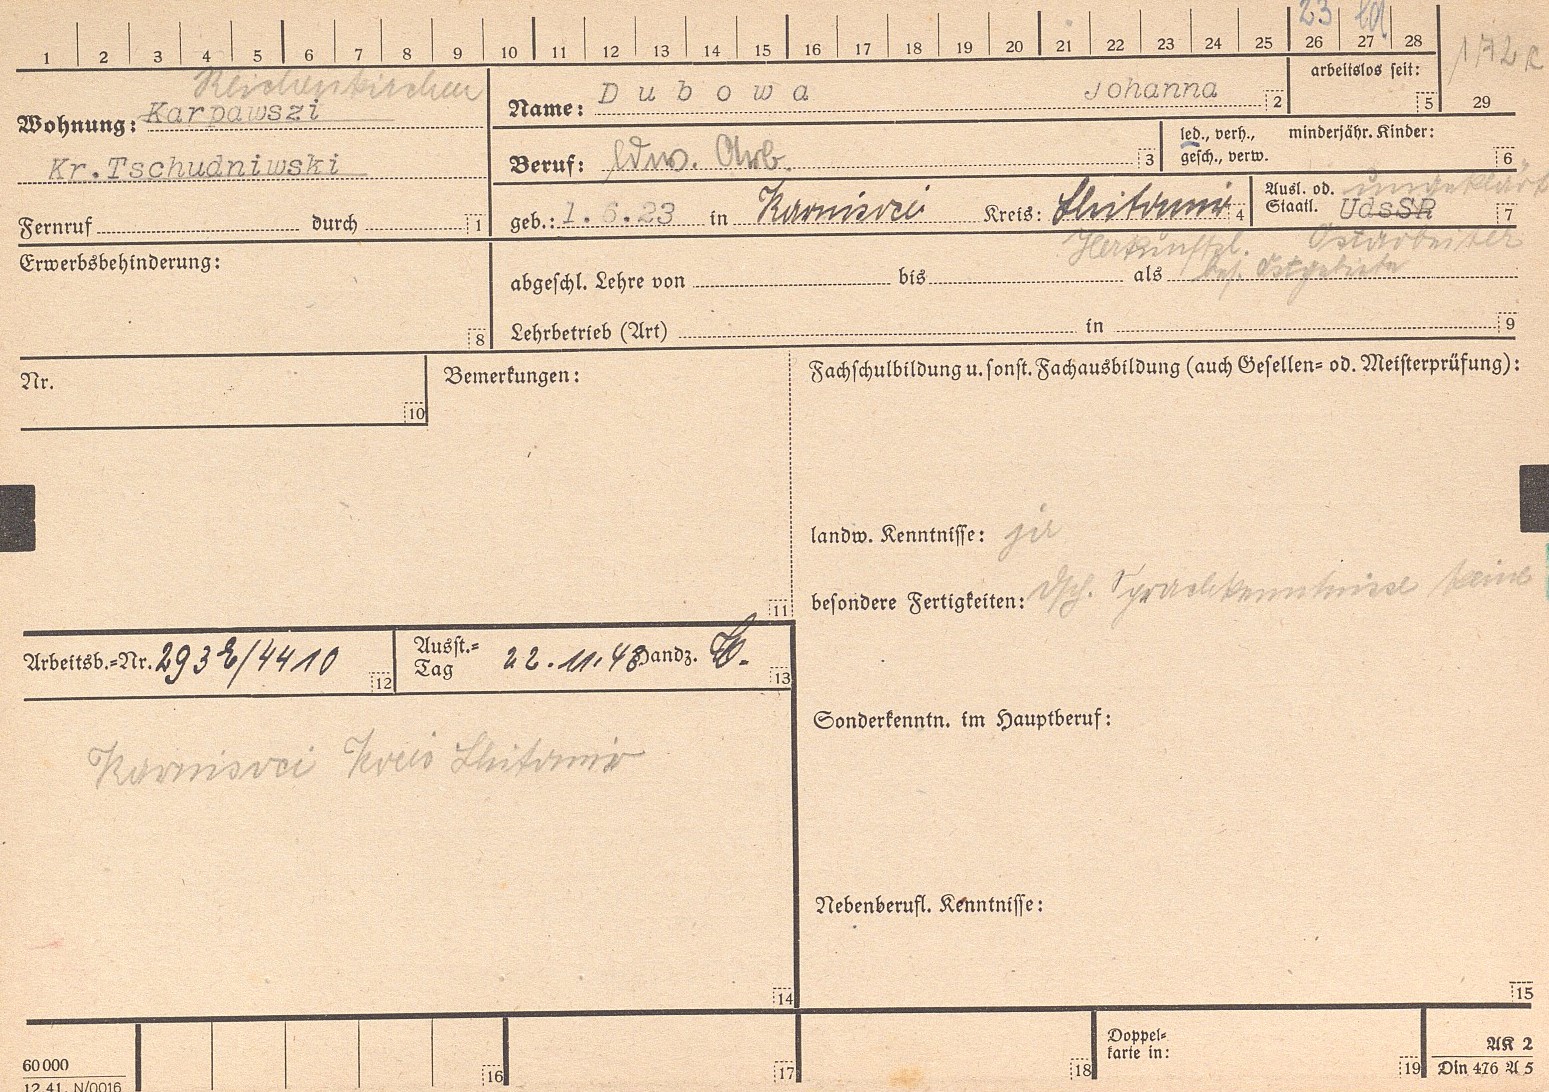 1 2 3 4 5 6 7 8 9 10 11 12 13 14 15 16 17 18 19 20 21 22 23 24 25 26 27 28
23
172 R
29
arbeitslos seit:
5
Reichenkirchen
Wohnung: Karpawszi
Kr. Tschudniwski
Fernruf durch 1
Name: Dubowa Johanna 2
Beruf: ldw. Arb. 3
led., verh., minderjähr. Kinder:
gesch., verw. 6
geb.: 1.6.23 in Karnisvci Kreis: Shitomir 4
Ausl. od. ungeklärt
Staatl. UdsSR 7
Herkunftsl. Ostarbeiter
bes. Ostgebiete
Erwerbsbehinderung:
8
abgeschl. Lehre von bis als
Lehrbetrieb (Art) in 9
Nr.
10
Bemerkungen:
11
Fachschulbildung u. sonst. Fachausbildung (auch Gesellen= od. Meisterprüfung):
landw. Kenntnisse: ja
besondere Fertigkeiten: dtsch. Sprachkenntnisse keine
Arbeitsb.=Nr. 293 /4410 12
Ausst.=
Tag 22.11.43 Handz. 13
Karnisvci Kreis Shitomir
14
Sonderkenntn. im Hauptberuf:
Nebenberufl. Kenntnisse:
15
60 000
12.41. N/0016
16
17
18
Doppel=
karte in:
19
AK 2
Din 476 A 5